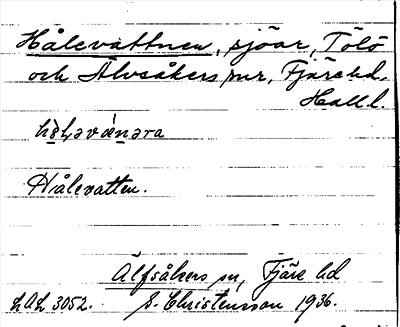 Hålevattnen, sjöar, Tölö
och Älvsåkers snr, Fjäre hd.
Hall l.
Hålevatten.
Älfsåkers sn, Fjäre hd
LAL 3052. E. Christenson 1936.